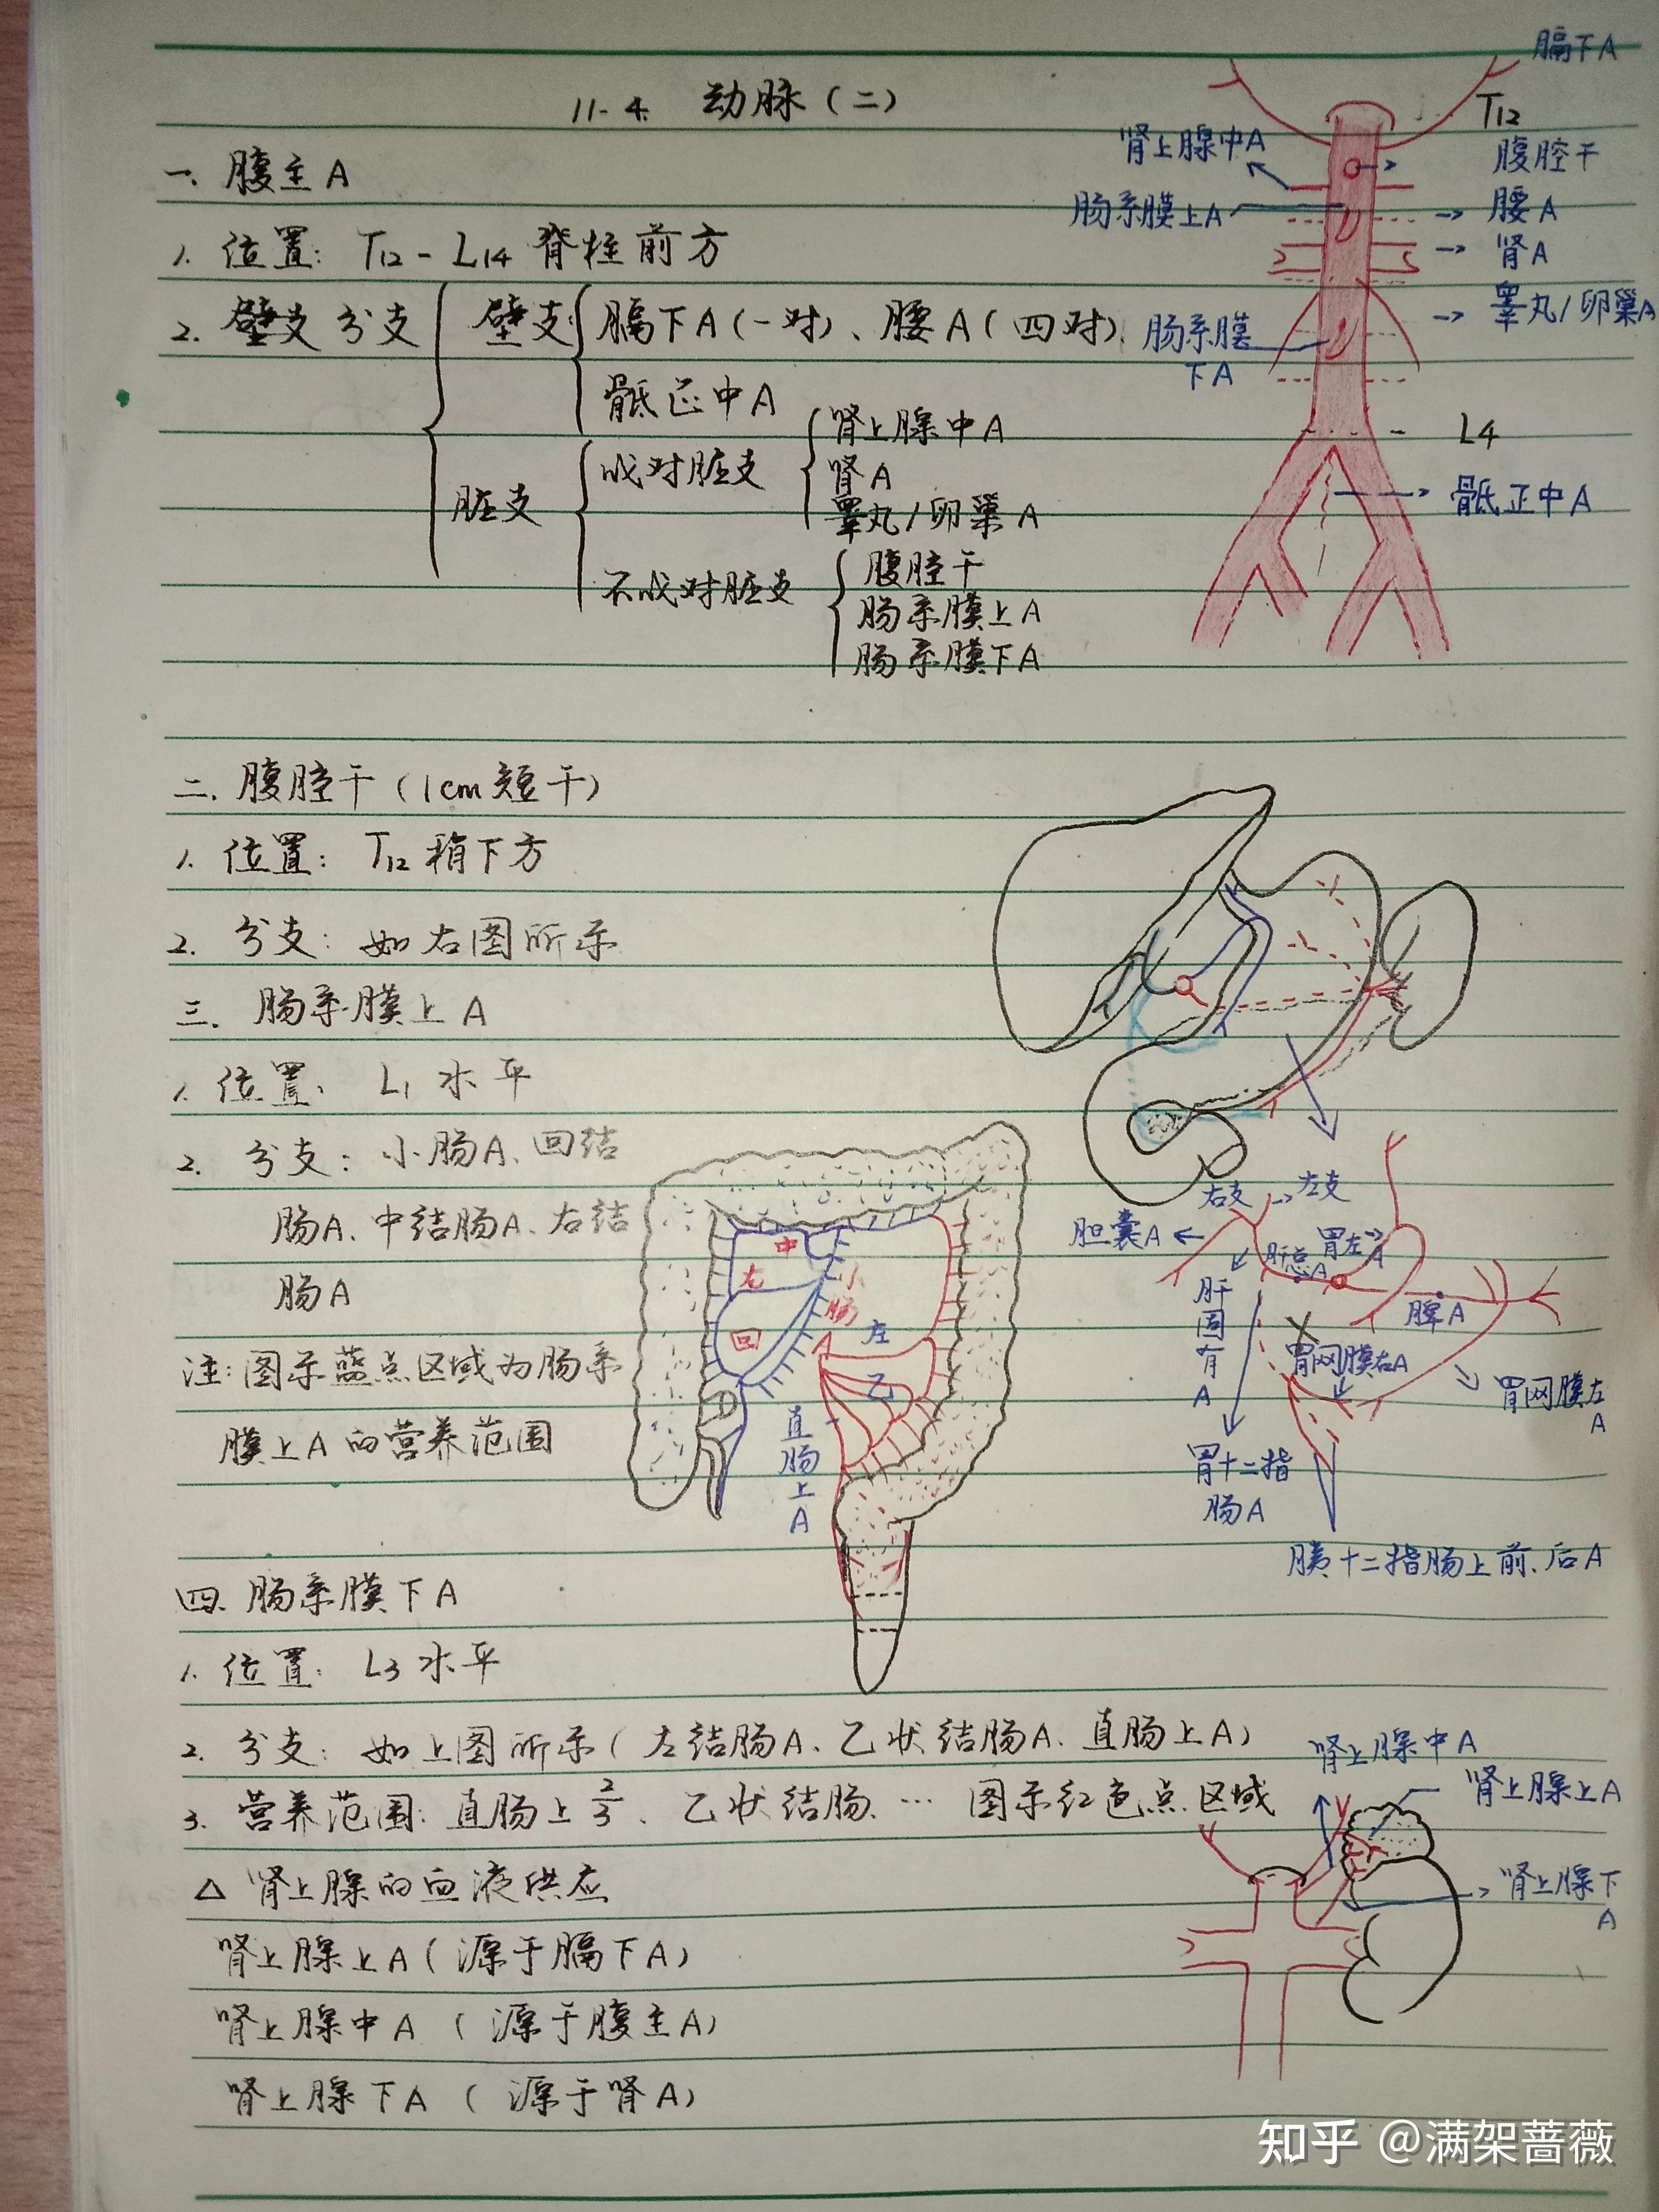 11-4. 动脉（二）
一. 腹主A
1. 位置: T12 - L14 脊柱前方
2. 壁支 分支
壁支
膈下A（一对）、腰A（四对）
骶正中A
脏支
成对脏支
肾上腺中A
肾A
睾丸/卵巢A
不成对脏支
腹腔干
肠系膜上A
肠系膜下A
膈下A
T12
肾上腺中A
腹腔干
肠系膜上A
腰A
肾A
睾丸/卵巢A
肠系膜
下A
L4
骶正中A
二. 腹腔干（1cm短干）
1. 位置: T12 稍下方
2. 分支: 如右图所示
三. 肠系膜上A
1. 位置: L1 水平
2. 分支: 小肠A、回结
肠A、中结肠A、右结
肠A
注: 图示蓝点区域为肠系
膜上A的营养范围
中
右
回
小
肠
A
左
乙
直
肠
上
A
右支
左支
胆囊A
肝总
A
胃左A
肝
固
有
A
脾A
胃网膜右A
胃网膜左
A
胃十二指
肠A
胰十二指肠上前.后A
四. 肠系膜下A
1. 位置: L3水平
2. 分支: 如上图所示（左结肠A、乙状结肠A、直肠上A）
3. 营养范围: 直肠上2/3、乙状结肠、… 图示红色点区域
△ 肾上腺的血液供应
肾上腺上A（源于膈下A）
肾上腺中A（源于腹主A）
肾上腺下A（源于肾A）
肾上腺中A
肾上腺上A
肾上腺下
A
知乎 @满架蔷薇